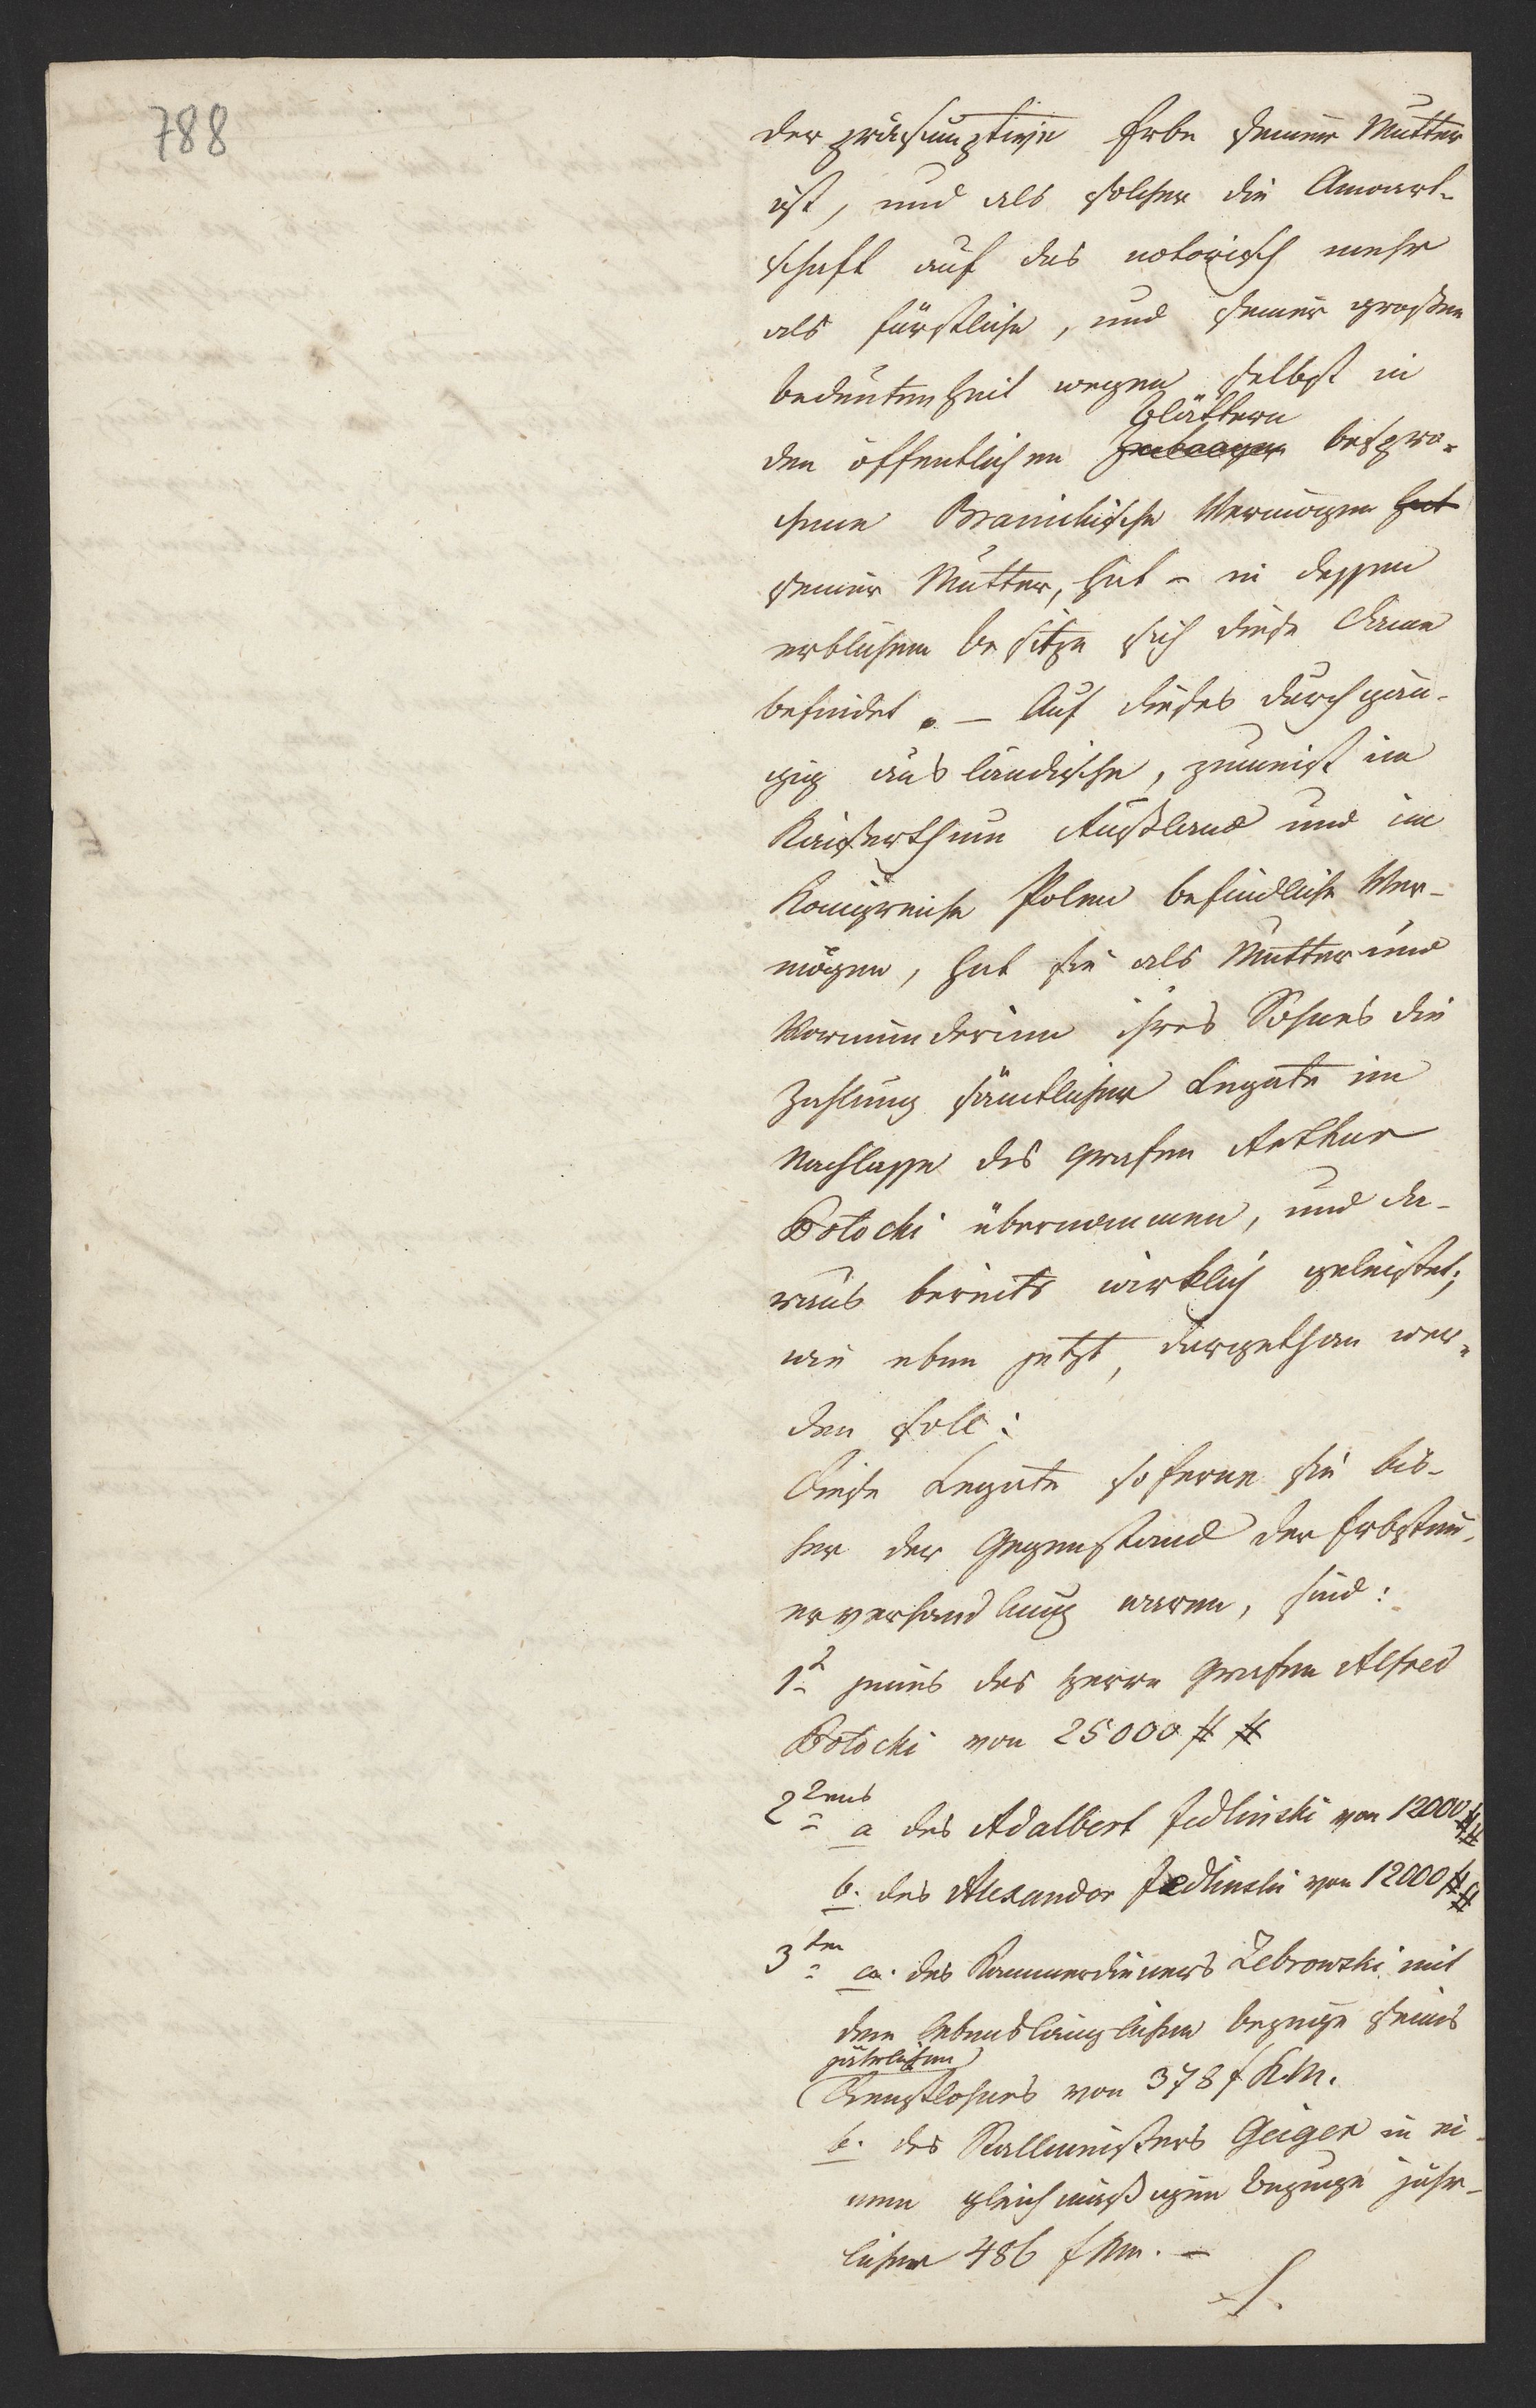 788
der präsumptive Erbe seiner Mutter
ist, und als solcher die Anwart-
schaft auf das notorisch mehr
als fürstliche, und seiner großen
bedeutenheit wegen selbst in
Blättern
den öffentlichen bespro-
chene Branickische Vermögen hat
seiner Mutter, hat – in dessen
erblichem Besitze sich diese Dame
befindet. – Auf dieses durchgän-
gig ausländische, zumeist im
Kaiserthum Rußland und im
Königreiche Polen befindliche Ver-
mögen, hat sie als Mutter und
Vormünderinn ihres Sohnes die
Zahlung sämtlicher Legate im
Nachlasse des Grafen Arthur
Potocki übernommen, und da-
raus bereits wirklich geleistet;
wie eben jetzt, dargethan wer-
den soll:
Diese Legate soferne sie bis-
her der Gegenstand der Erbsteu-
erverhandlung waren, sind:
1t jenes des Herrn Grafen Alfred
Potocki von 25000 ##
2tens a des Adalbert Jedlinski von 12000 ##
b. des Alexander Jedlinski von 12000 ##
3ten a. des Kammerdieners Zebrowski mit
dem lebenslänglichen bezuge seines
jährlichen
Dienstlohnes von 378 f KM.
b. des Stallmeisters Geiger in ei-
nem gleichmäßigen Bezuge jähr-
licher 486 f KM. –